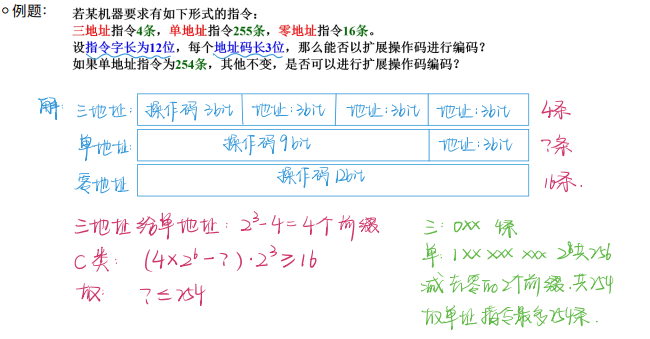 例题：
若某机器要求有如下形式的指令：
三地址指令4条，单地址指令255条，零地址指令16条。
设指令字长为12位，每个地址码长3位，那么能否以扩展操作码进行编码？
如果单地址指令为254条，其他不变，是否可以进行扩展操作码编码？
解：三地址： 操作码3bit 地址：3bit 地址：3bit 地址：3bit 4条
单地址： 操作码9bit 地址：3bit ?条
零地址 操作码12bit 16条.
三地址给单地址：2³-4=4个前缀
C类： (4×2⁶-?)·2³≥16
故： ?≤254
三：0XX 4条
单：1XX XXX XXX 2⁸共256
减去零的2个前缀.共254
故单址指令最多254条.